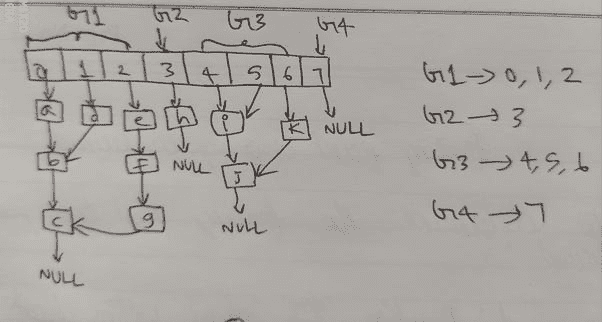 G1 G2 G3 G4
0 1 2 3 4 5 6 7
a d e h i K NULL
b f NULL J
c g NULL
NULL
G1 → 0, 1, 2
G2 → 3
G3 → 4, 5, 6
G4 → 7